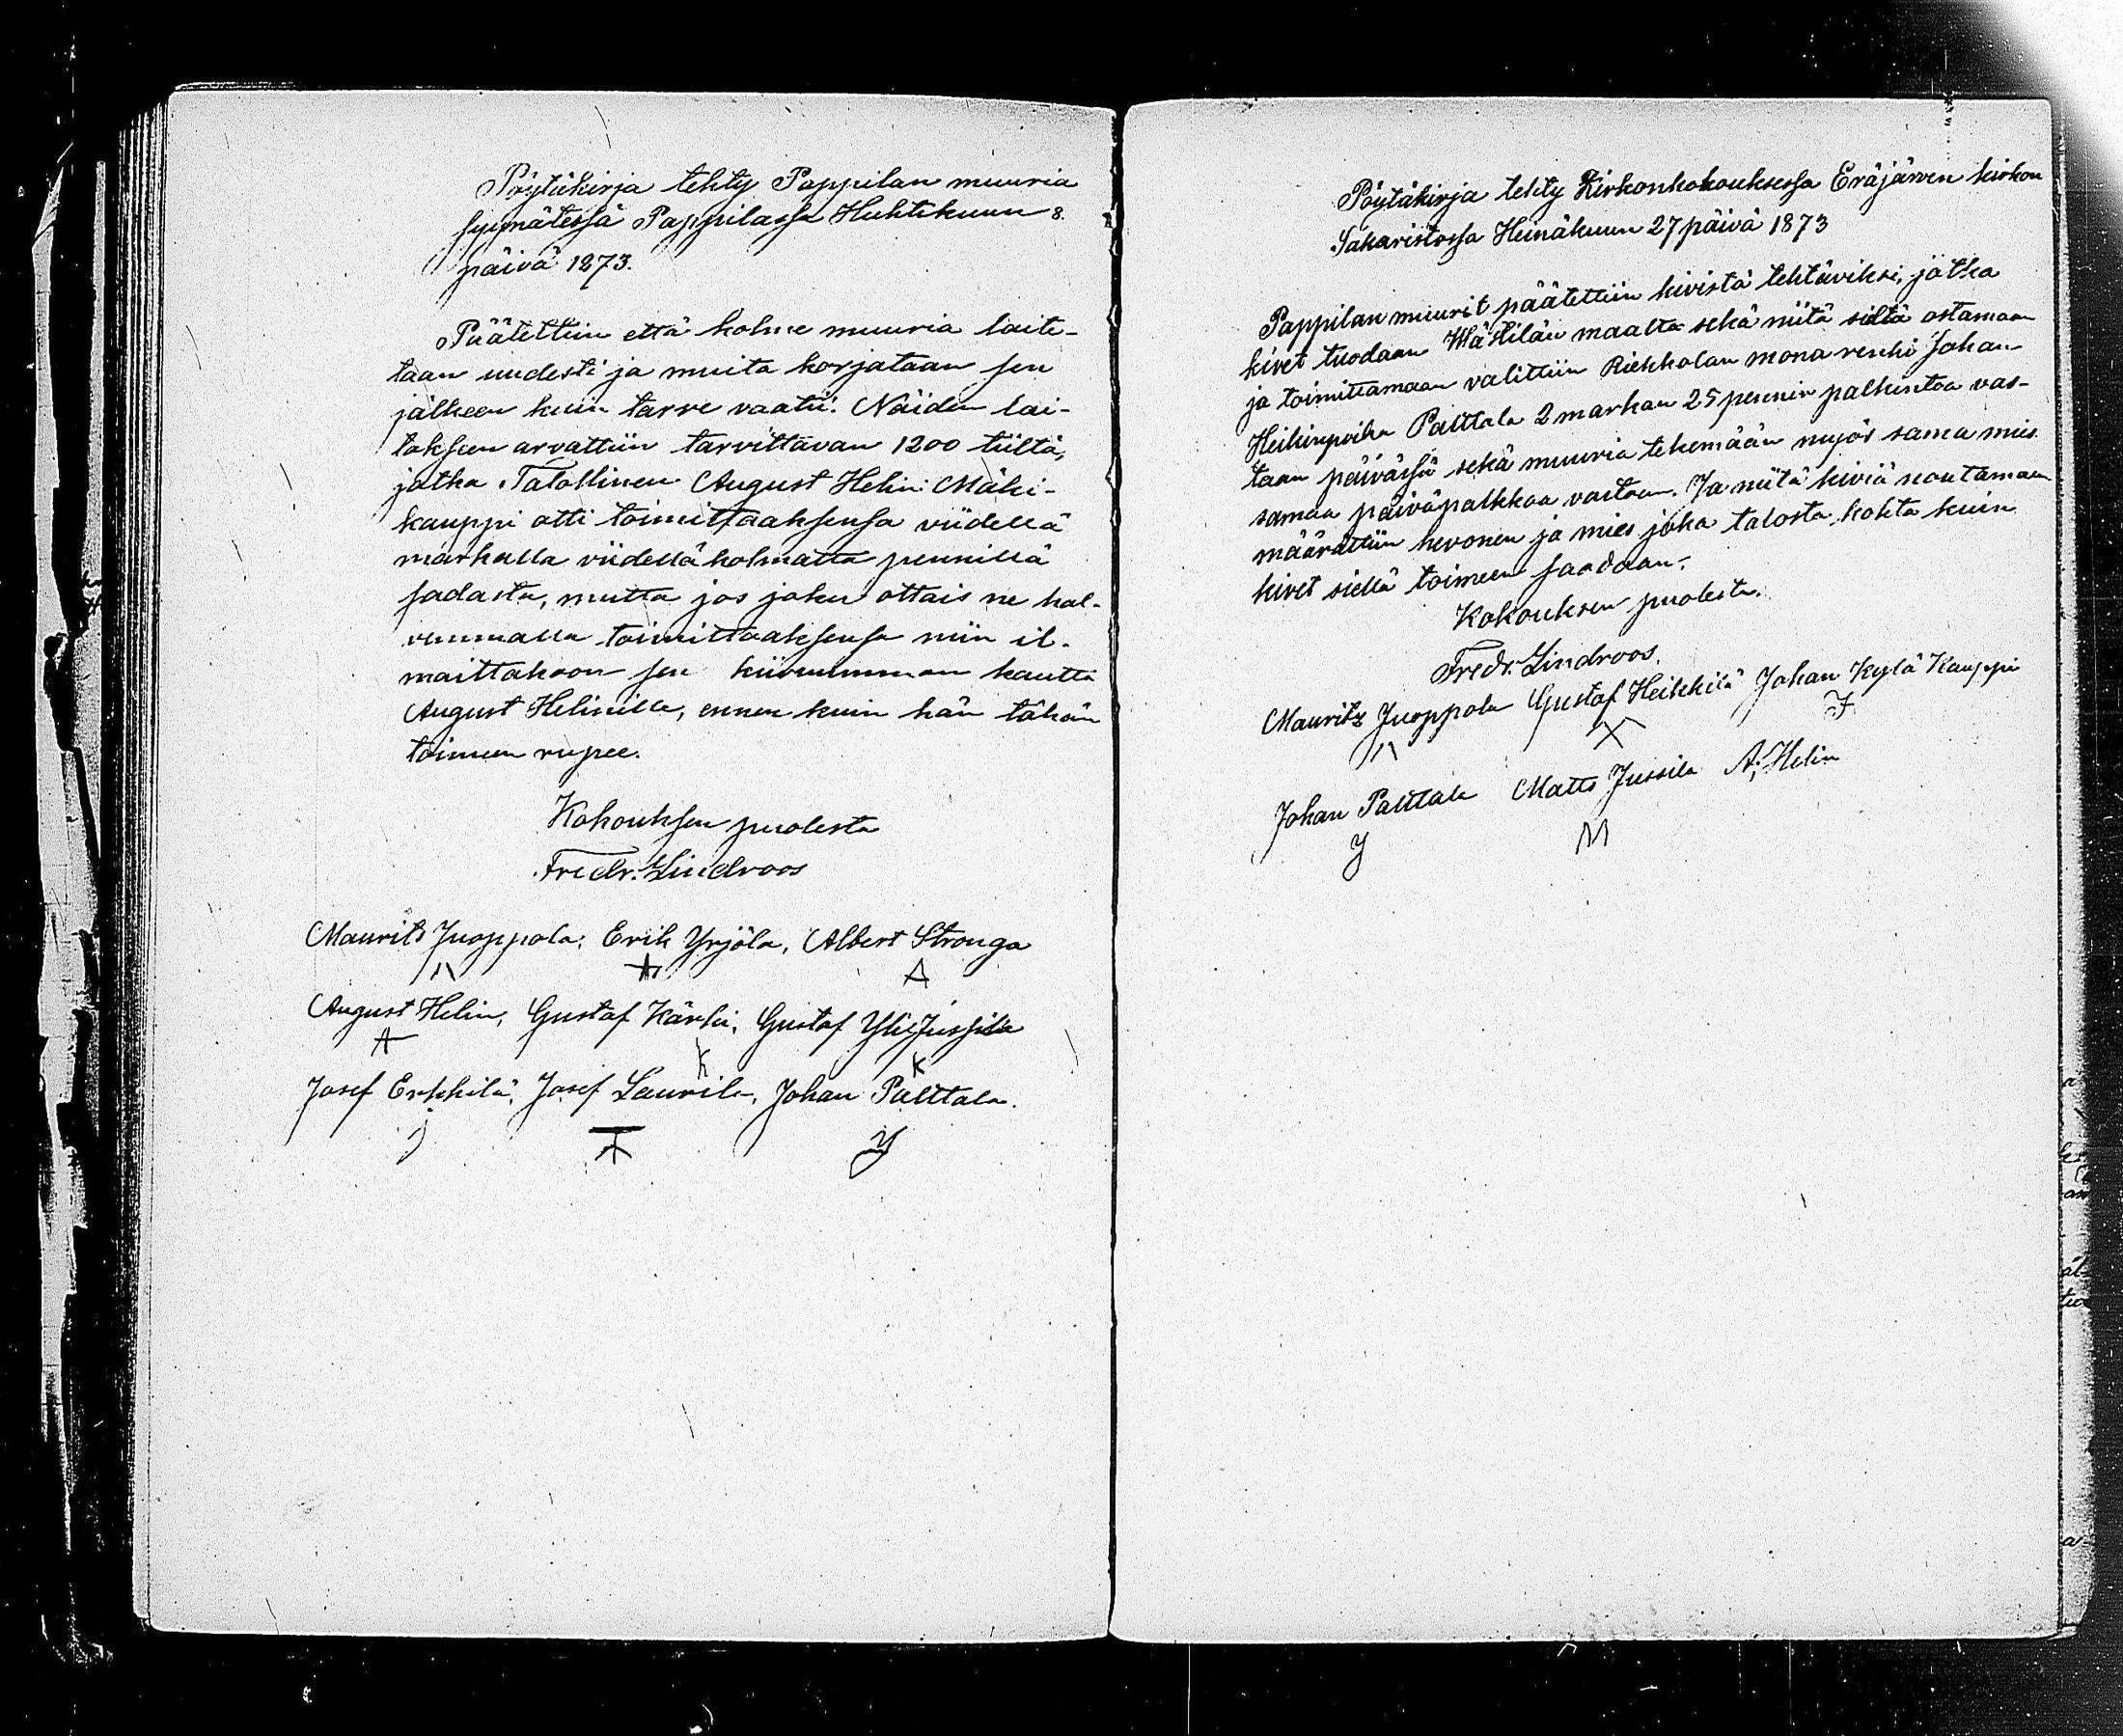 Pöytäkirja tehty Pappilan muuria
syynätessä Pappilassa Huhtikuun 8.
päivä 1873.
Päätettiin että kolme muuria laite-
taan uudesti ja muita korjataan sen
jälkeen kuin tarve vaatii. Näiden lai-
tokseen arvattiin tarvittavan 1200 tiiltä,
jotka Talollinen August Helin Mäki-
kauppi otti toimittaaksensa viidellä
markalla viidelläkolmatta pennillä
sadasta, mutta jos joku ottais ne hal-
vemmalla toimittaaksensa niin il-
moittakoon sen kiiruumman kautta
August Helinille, ennen kuin hän tähän
toimeen rupee.
Kokouksen puolesta
Fredr. Lindroos
Maurits Juoppola, Erik Yrjölä, Albert Stronga
A
August Helin, Gustaf Kärki, Gustaf YliJussila
A K K
Josef Erkkilä, Josef Laurila, Johan Palttala.
j y
Pöytäkirja tehty Kirkonkokouksessa Eräjärven kirkon
Sakaristossa Heinäkuun 27 päivä 1873
Pappilan muurit päätettiin kivistä tehtäviksi, jotka
kivet tuodaan Wästilän maalta sekä niitä sieltä ostamaan
ja toimittamaan valittiin Riekkolan mona renki Johan
Heikinpoika Palttala 2 markan 25 pennin palkintoa vas-
taan päivässä sekä muuria tekemään myös sama mies
samaa päiväpalkkaa vastaan. Ja niitä kiviä noutamaan
määrättiin hevonen ja mies joka talosta, kohta kuin
kivet siellä toimeen saadaan.
Kokouksen puolesta.
Fredr. Lindroos.
Mauritz Juoppola Gustaf Heikkilä Johan Kylä Kauppi
X J
Johan Palttala Matts Jussila A. Helin
y M